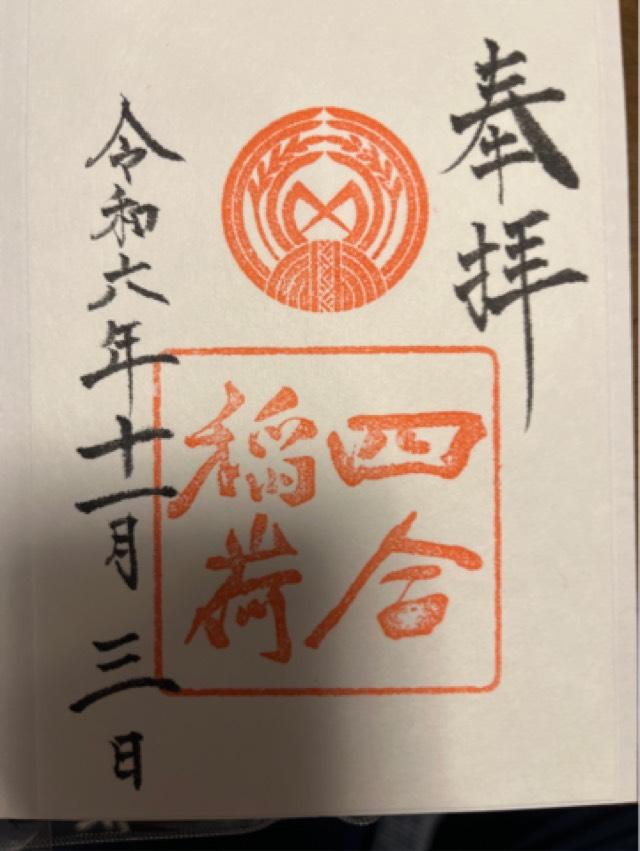 奉拝
四合
稲荷
令和六年十一月三日